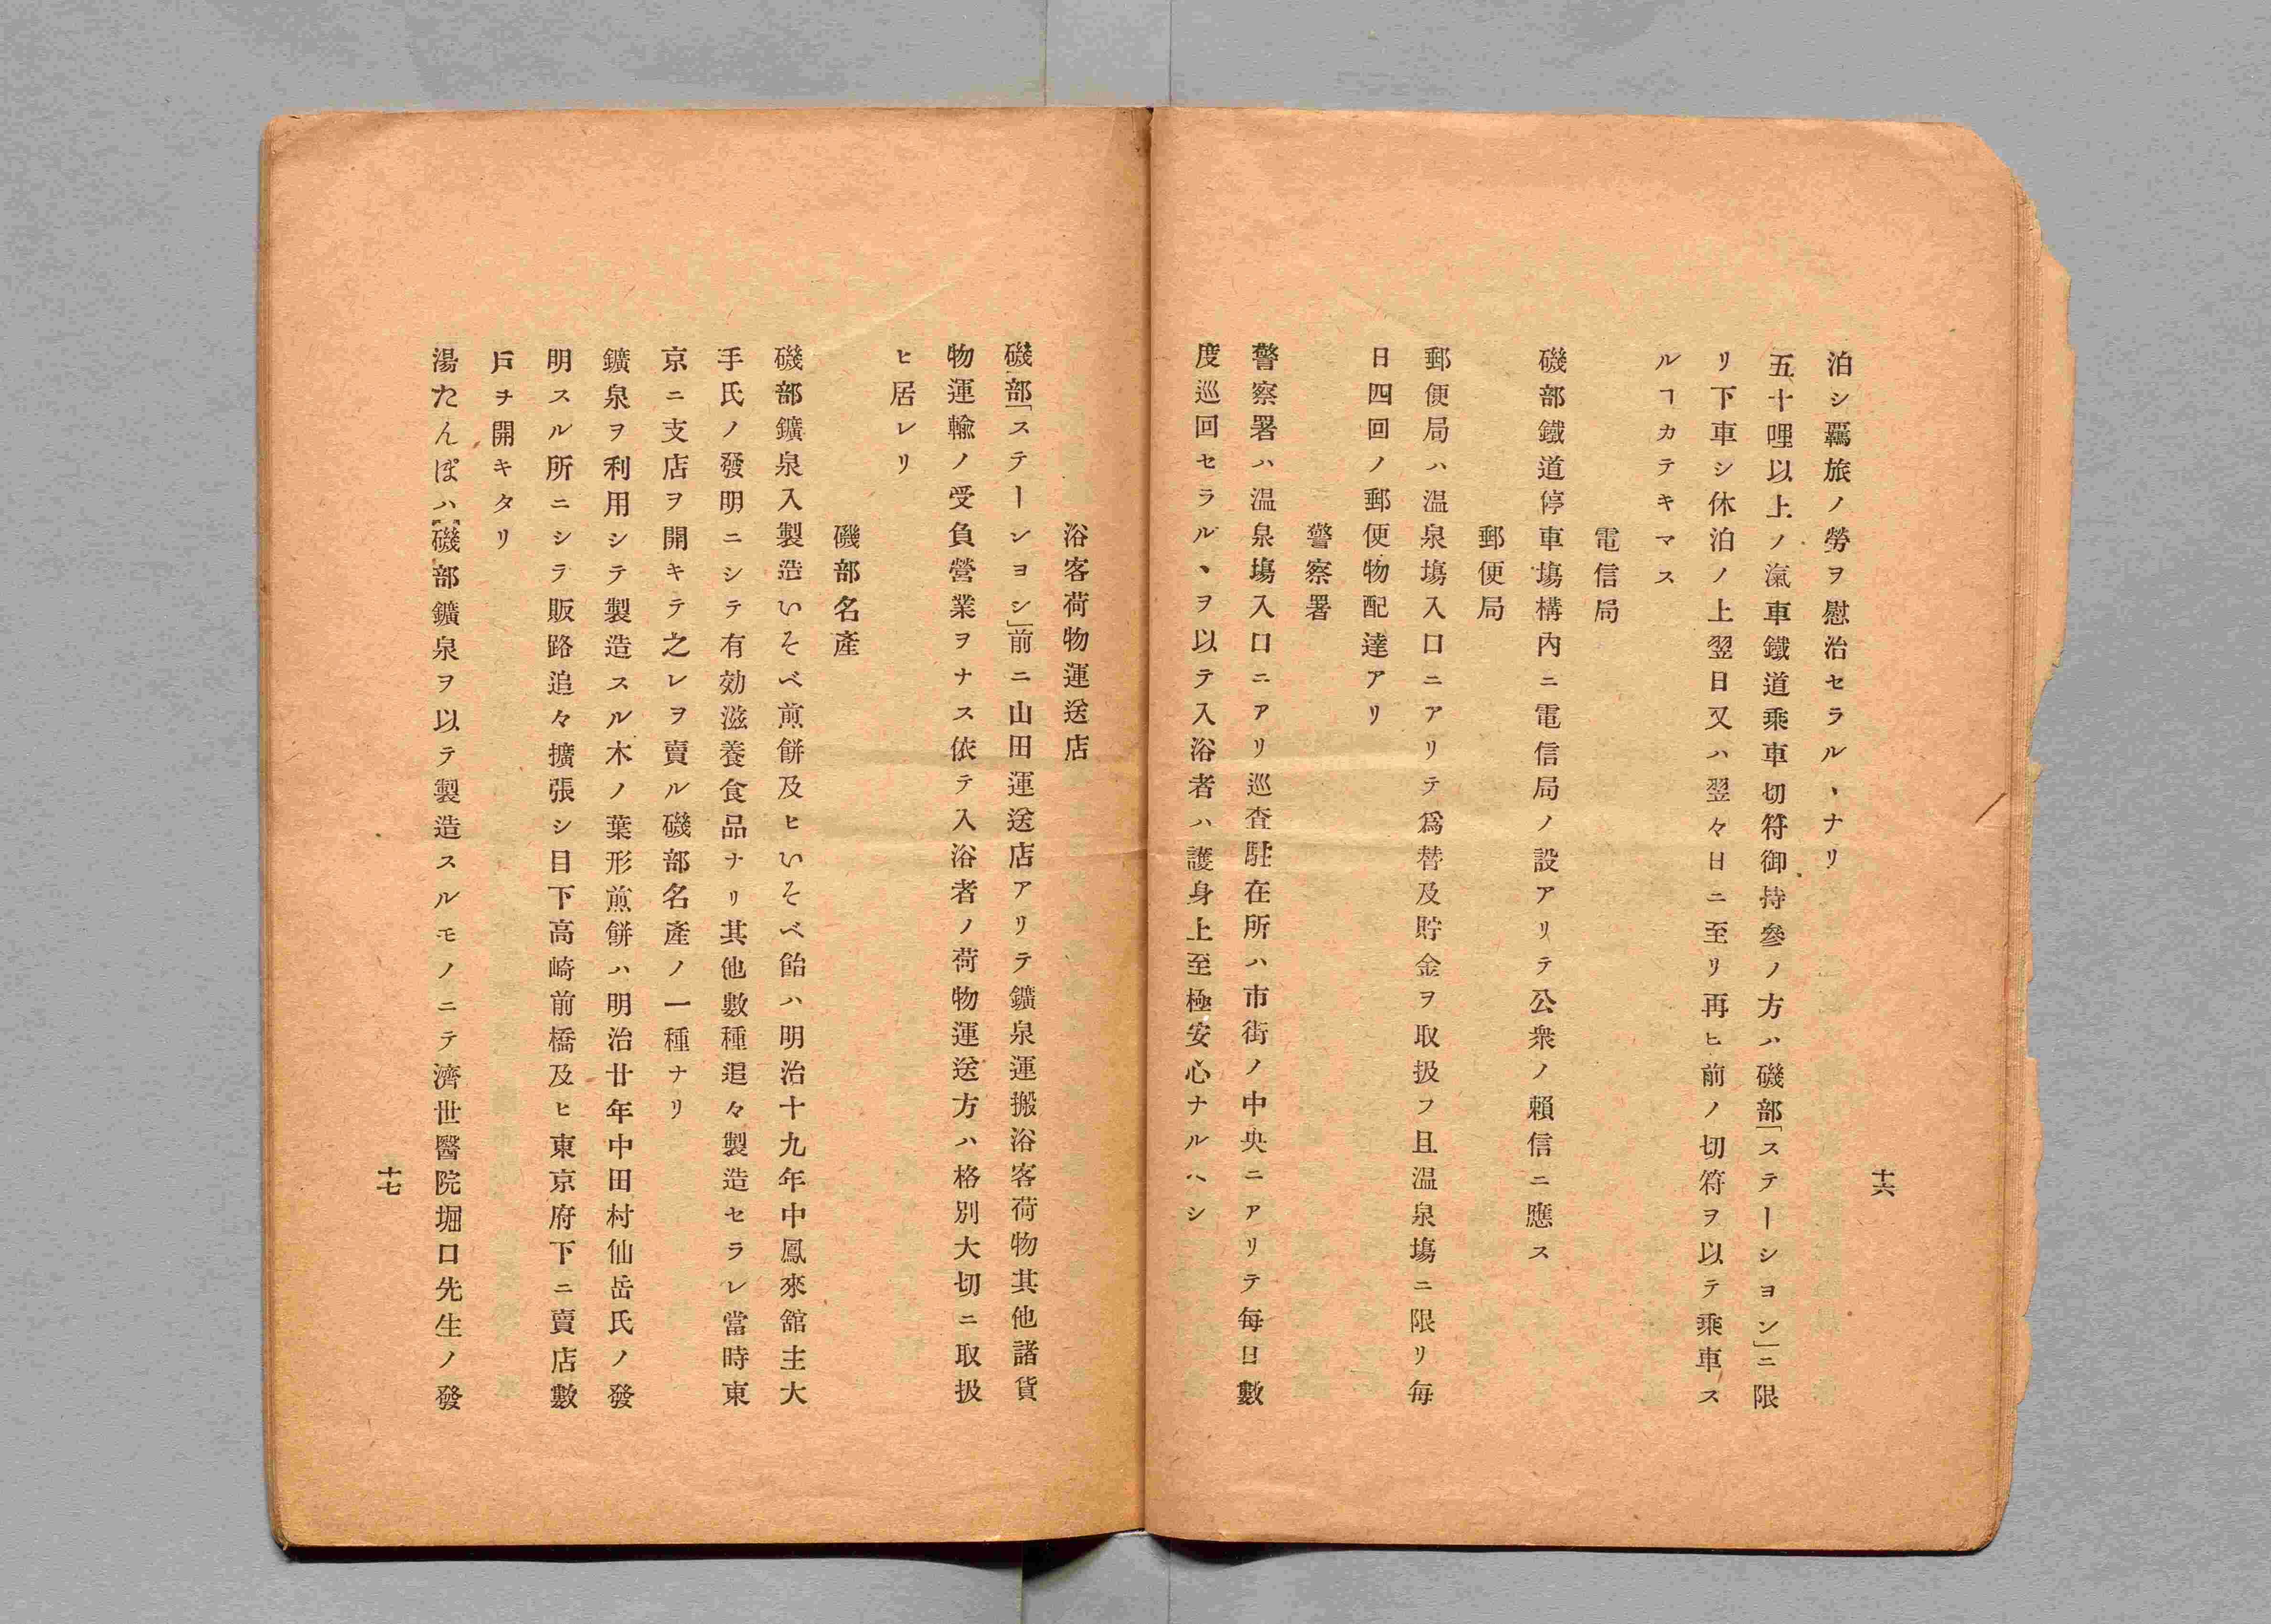 十六
泊シ羈旅ノ勞ヲ慰治セラルヽナリ
五十哩以上ノ滊車鐵道乘車切符御持參ノ方ハ磯部「ステーシヨン」ニ限
リ下車シ休泊ノ上翌日又ハ翌々日ニ至リ再ヒ前ノ切符ヲ以テ乘車ス
ルヿカテキマス
電信局
磯部鐵道停車塲構內ニ電信局ノ設アリテ公衆ノ賴信ニ應ス
郵便局
郵便局ハ温泉塲入口ニアリテ爲替及貯金ヲ取扱フ且温泉塲ニ限リ每
日四回ノ郵便物配達アリ
警察署
警察署ハ温泉塲入口ニアリ巡査駐在所ハ市街ノ中央ニアリテ每日數
度巡回セラルヽヲ以テ入浴者ハ護身上至極安心ナルヘシ
浴客荷物運送店
磯部「ステーンヨシ」前ニ山田運送店アリテ鑛泉運搬浴客荷物其他諸貨
物運輸ノ受負營業ヲナス依テ入浴者ノ荷物運送方ハ格別大切ニ取扱
ヒ居レリ
磯部名產
磯部鑛泉入製造いそべ煎餅及ヒいそべ飴ハ明治十九年中鳳來舘主大
手氏ノ發明ニシテ有効滋養食品ナリ其他數種追々製造セラレ當時東
京ニ支店ヲ開キテ之レヲ賣ル磯部名產ノ一種ナリ
鑛泉ヲ利用シテ製造スル木ノ葉形煎餅ハ明治廿年中田村仙岳氏ノ發
明スル所ニシラ販路追々擴張シ目下高崎前橋及ヒ東京府下ニ賣店數
戶ヲ開キタリ
湯たんぽハ「磯部鑛泉ヲ以テ製造スルモノニテ濟世醫院堀口先生ノ發
十七